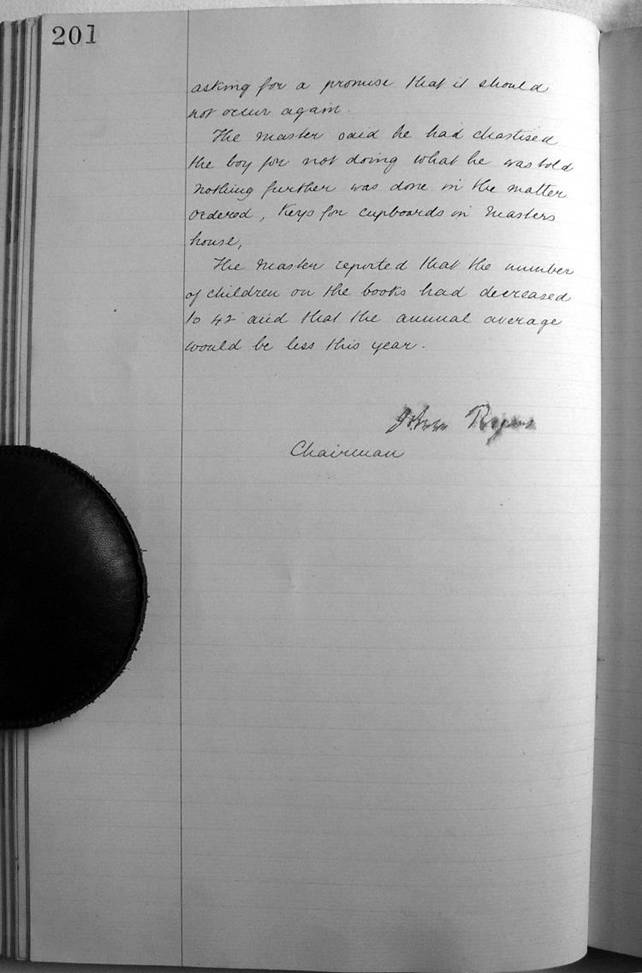 201
asking for a promise that it should
not occur again.
The master said he had chastised
the boy for not doing what he was told
nothing further was done in the matter
ordered, Keys for cupboards in Masters
house,
The Master reported that the number
of children on the books had decreased
to 42 and that the annual average
would be less this year.
John
Chairman